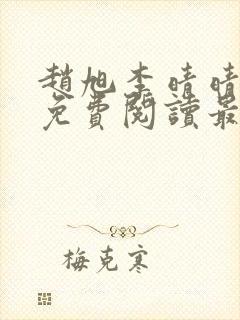 趙旭李晴晴
免費閱讀最
梅克寒